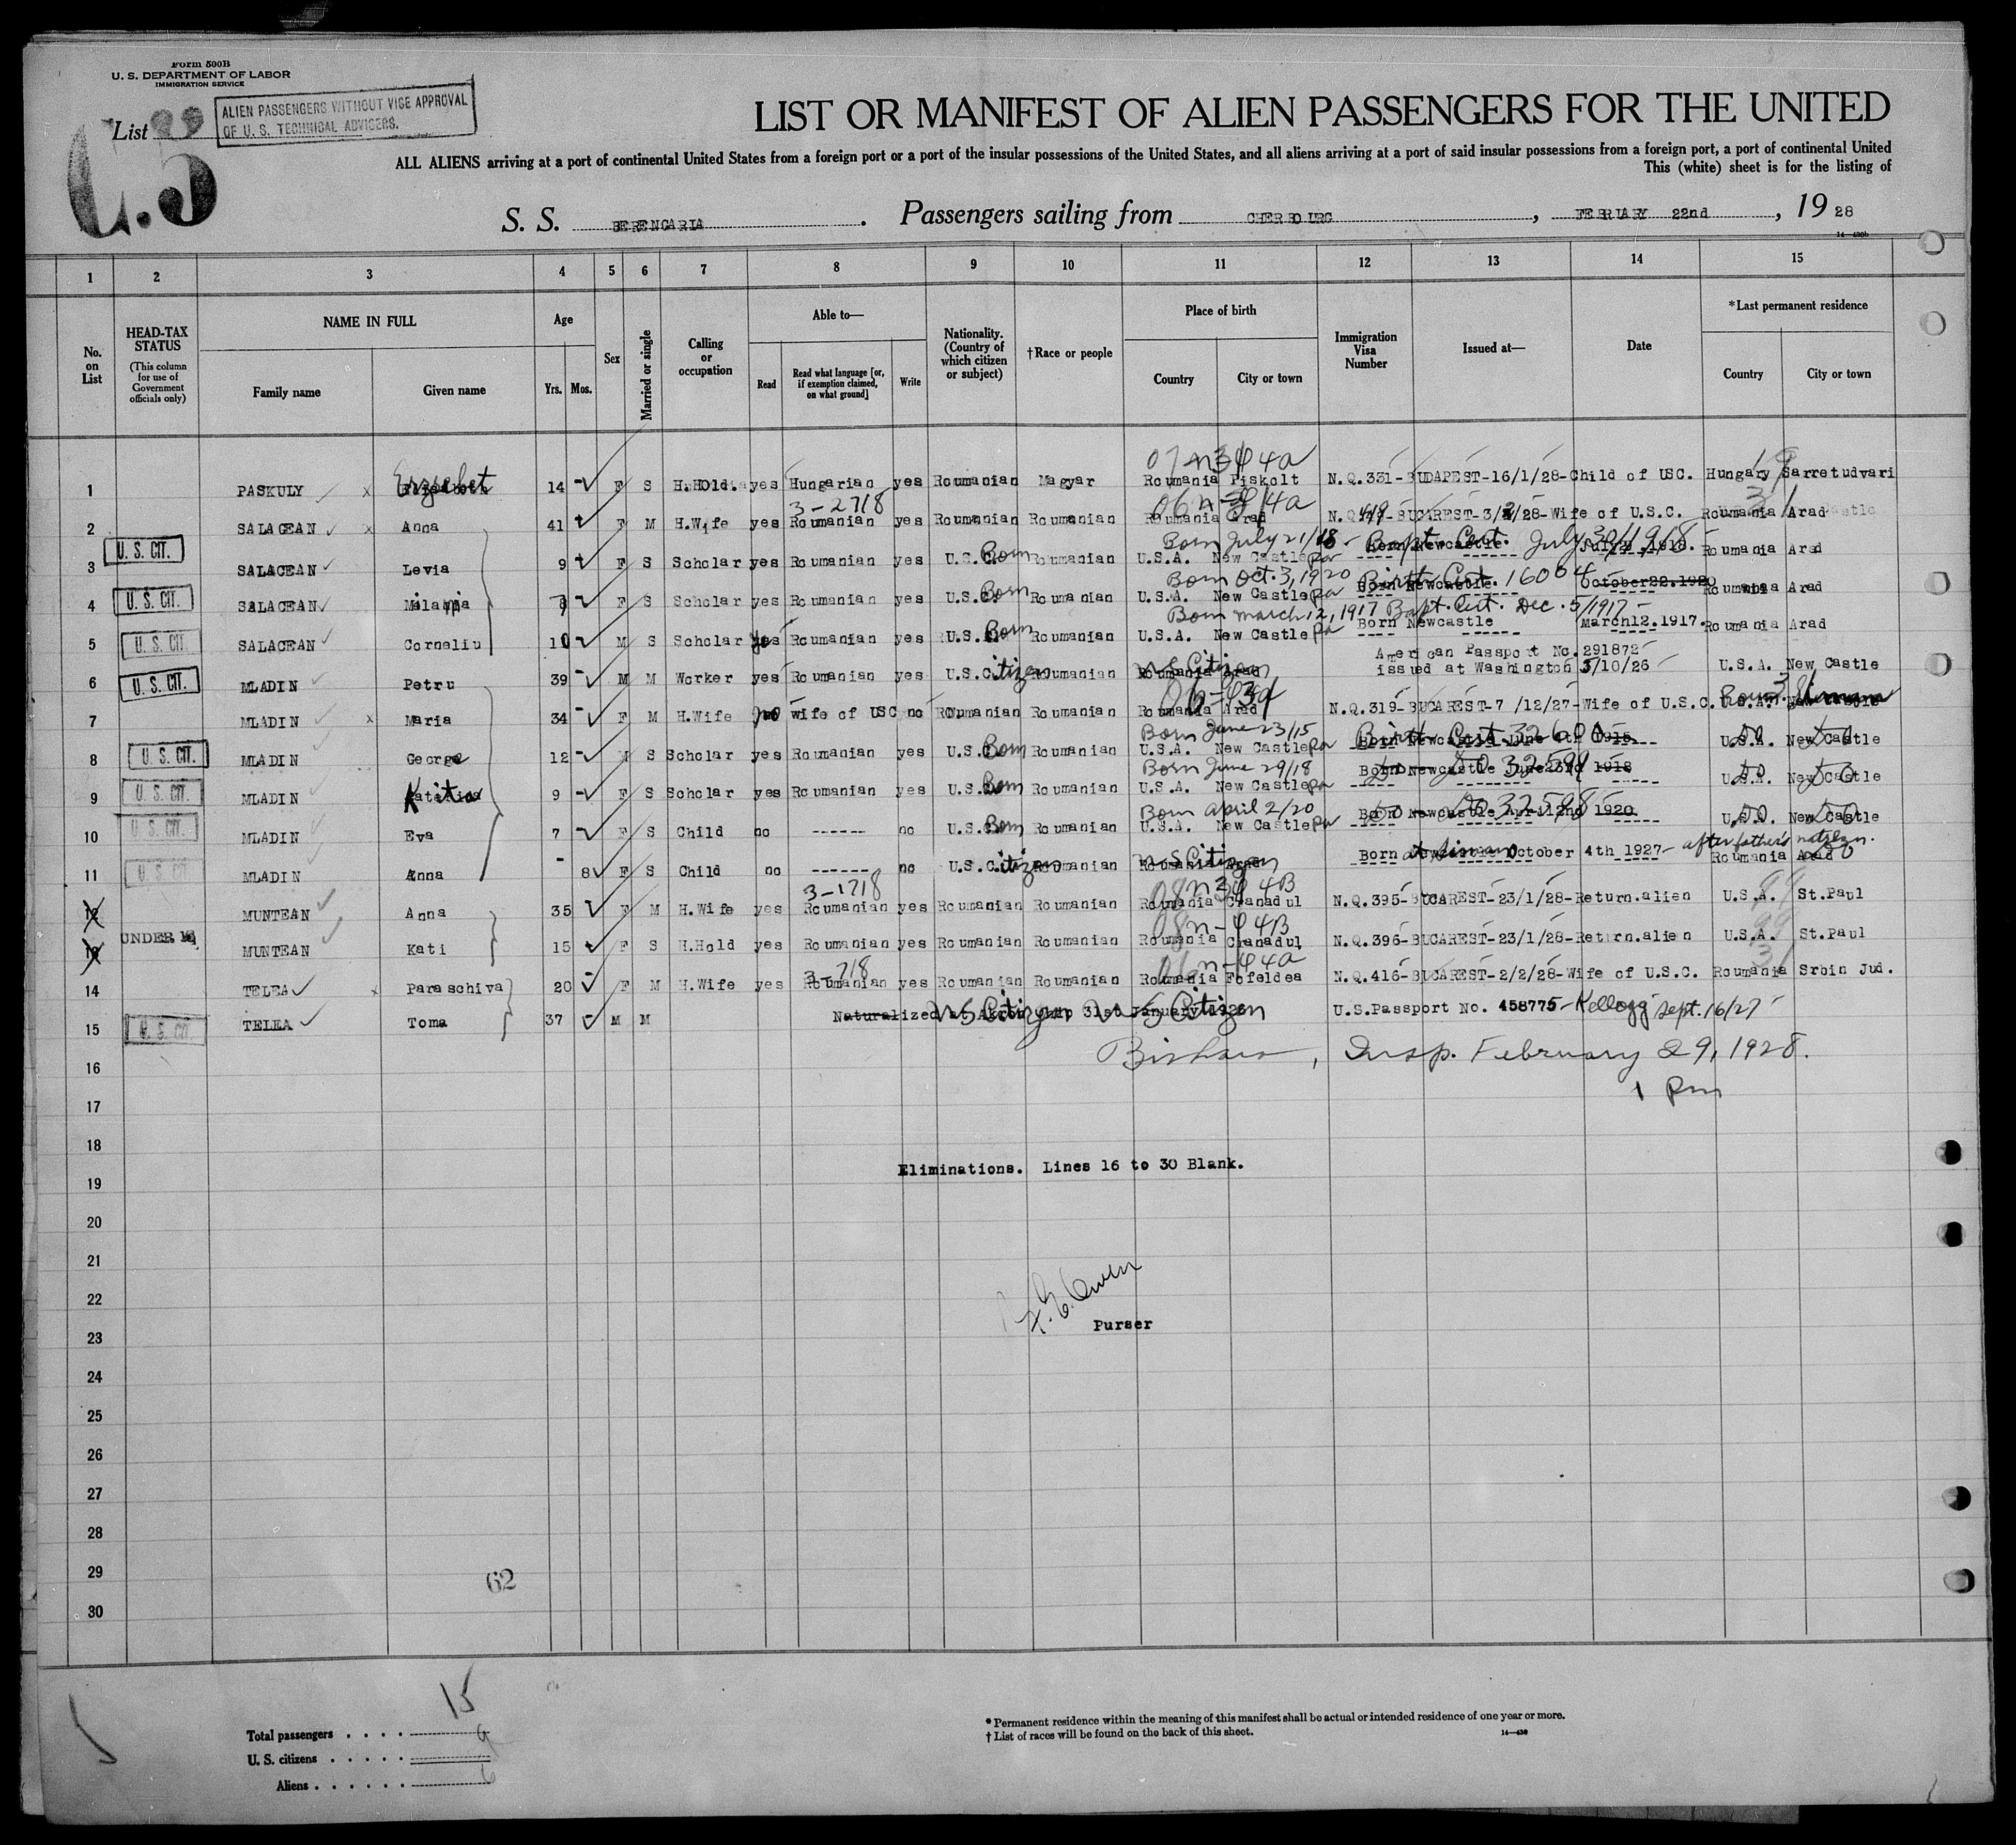 Form 500B
U. S. DEPARTMENT OF LABOR
IMMIGRATION SERVICE
ALIEN PASSENGERS WITHOUT VISE APPROVAL
OF U. S. TECHNICAL ADVISERS.
List
LIST OR MANIFEST OF ALIEN PASSENGERS FOR THE UNITED
ALL ALIENS arriving at a port of continental United States from a foreign port or a port of the insular possessions of the United States, and all aliens arriving at a port of said insular possessions from a foreign port, a port of continental United
This (white) sheet is for the listing of
S. S. BERENGARIA. Passengers sailing from CHERBOURG, FEBRUARY 22nd, 1928
1 2 3 4 5 6 7 8 9 10 11 12 13 14 15
No. on List
HEAD-TAX STATUS (This column for use of Government officials only)
NAME IN FULL Family name Given name
Age Yrs. Mos.
Sex
Married or single
Calling or occupation
Able to— Read Read what language [or, if exemption claimed, on what ground] Write
Nationality. (Country of which citizen or subject)
†Race or people
Place of birth Country City or town
Immigration Visa Number
Issued at—
Date
*Last permanent residence Country City or town
1 PASKULY x Erzsebet 14 - F S H.Hold. yes Hungarian yes Roumanian Magyar Roumania Piskolt N.Q.331-BUDAPEST-16/1/28-Child of USC. Hungary Sarretudvari
3-2718
2 SALAGEAN x Anna 41 F M H.Wife yes Roumanian yes Roumanian Roumanian Roumania Arad N.Q.419-BUCAREST-3/2/28-Wife of U.S.C. Roumania Arad
Born July 21/18 - Bapt. Cert. July 30/1918
3 U. S. CIT. SALAGEAN Levia 9 F S Scholar yes Roumanian yes U.S. Born Roumanian U.S.A. New Castle Pa Born Newcastle. Roumania Arad
Born Oct. 3, 1920 Birth Cert. 16004
4 U. S. CIT. SALAGEAN 7 F S Scholar yes Roumanian yes U.S. Born Roumanian U.S.A. New Castle Pa Born Newcastle. October 22.1920 Roumania Arad
Born March 12, 1917 Bapt. Cert. Dec. 5/1917-
5 U. S. CIT. SALAGEAN Corneliu 10 M S Scholar yes Roumanian yes U.S. Born Roumanian U.S.A. New Castle Pa Born Newcastle March12.1917. Roumania Arad
American Passport No. 291872
6 U. S. CIT. MLADIN Petru 39 - M M Worker yes Roumanian yes U.S. Citizen Roumanian U S Citizen issued at Washington 5/10/26 U.S.A. New Castle
7 MLADIN x Maria 34 - F M H.Wife no wife of USC no Roumanian Roumanian Roumania Arad N.Q.319-BUCAREST-7/12/27-Wife of U.S.C. Roum. Siman
Born June 23/15 Birth Cert. 32600
8 U. S. CIT. MLADIN George 12 - M S Scholar yes Roumanian yes U.S. Born Roumanian U.S.A. New Castle Pa Born Newcastle June 1915. U.S.A. New Castle
Born June 29/18 do 32599
9 U. S. CIT. MLADIN Katita 9 - F S Scholar yes Roumanian yes U.S. Born Roumanian U.S.A. New Castle Pa Born Newcastle June 1918 U.S.A. New Castle
Born April 2/20 do 32598
10 U. S. CIT. MLADIN Eva 7 - F S Child no ------ no U.S. Born Roumanian U.S.A. New Castle Pa Born Newcastle April 2nd 1920 U.S.A. New Castle
after father's natzn.
11 U. S. CIT. MLADIN Anna - 8 F S Child no ------ no U.S. Citizen Roumanian U S Citizen Born at Siman October 4th 1927- Roumania Arad
3-1718
12 MUNTEAN Anna 35 F M H.Wife yes Roumanian yes Roumanian Roumanian Roumania Cianadul N.Q.395-BUCAREST-23/1/28-Return.alien U.S.A. St.Paul
13 UNDER 16 MUNTEAN Kati 15 F S H.Hold yes Roumanian yes Roumanian Roumanian Roumania Cianadul N.Q.396-BUCAREST-23/1/28-Return.alien U.S.A. St.Paul
3-718
14 TELEA x Paraschiva 20 - F M H.Wife yes Roumanian yes Roumanian Roumanian Roumania Fofeldea N.Q.416-BUCAREST-2/2/28-Wife of U.S.C. Roumania Srbin Jud.
15 U. S. CIT. TELEA Toma 37 - M M Naturalized at Akron 31st January U S Citizen U S Citizen U.S.Passport No. 458775- Kellogg Sept. 16/27
16 , Insp. February 29, 1928.
1 pm
17
18
Eliminations. Lines 16 to 30 Blank.
19
20
21
22
23
Purser
24
25
26
27
28
29
62
30
15
Total passengers . . . .
U. S. citizens . . . . . 9
Aliens . . . . . . 6
*Permanent residence within the meaning of this manifest shall be actual or intended residence of one year or more.
†List of races will be found on the back of this sheet.
14—430